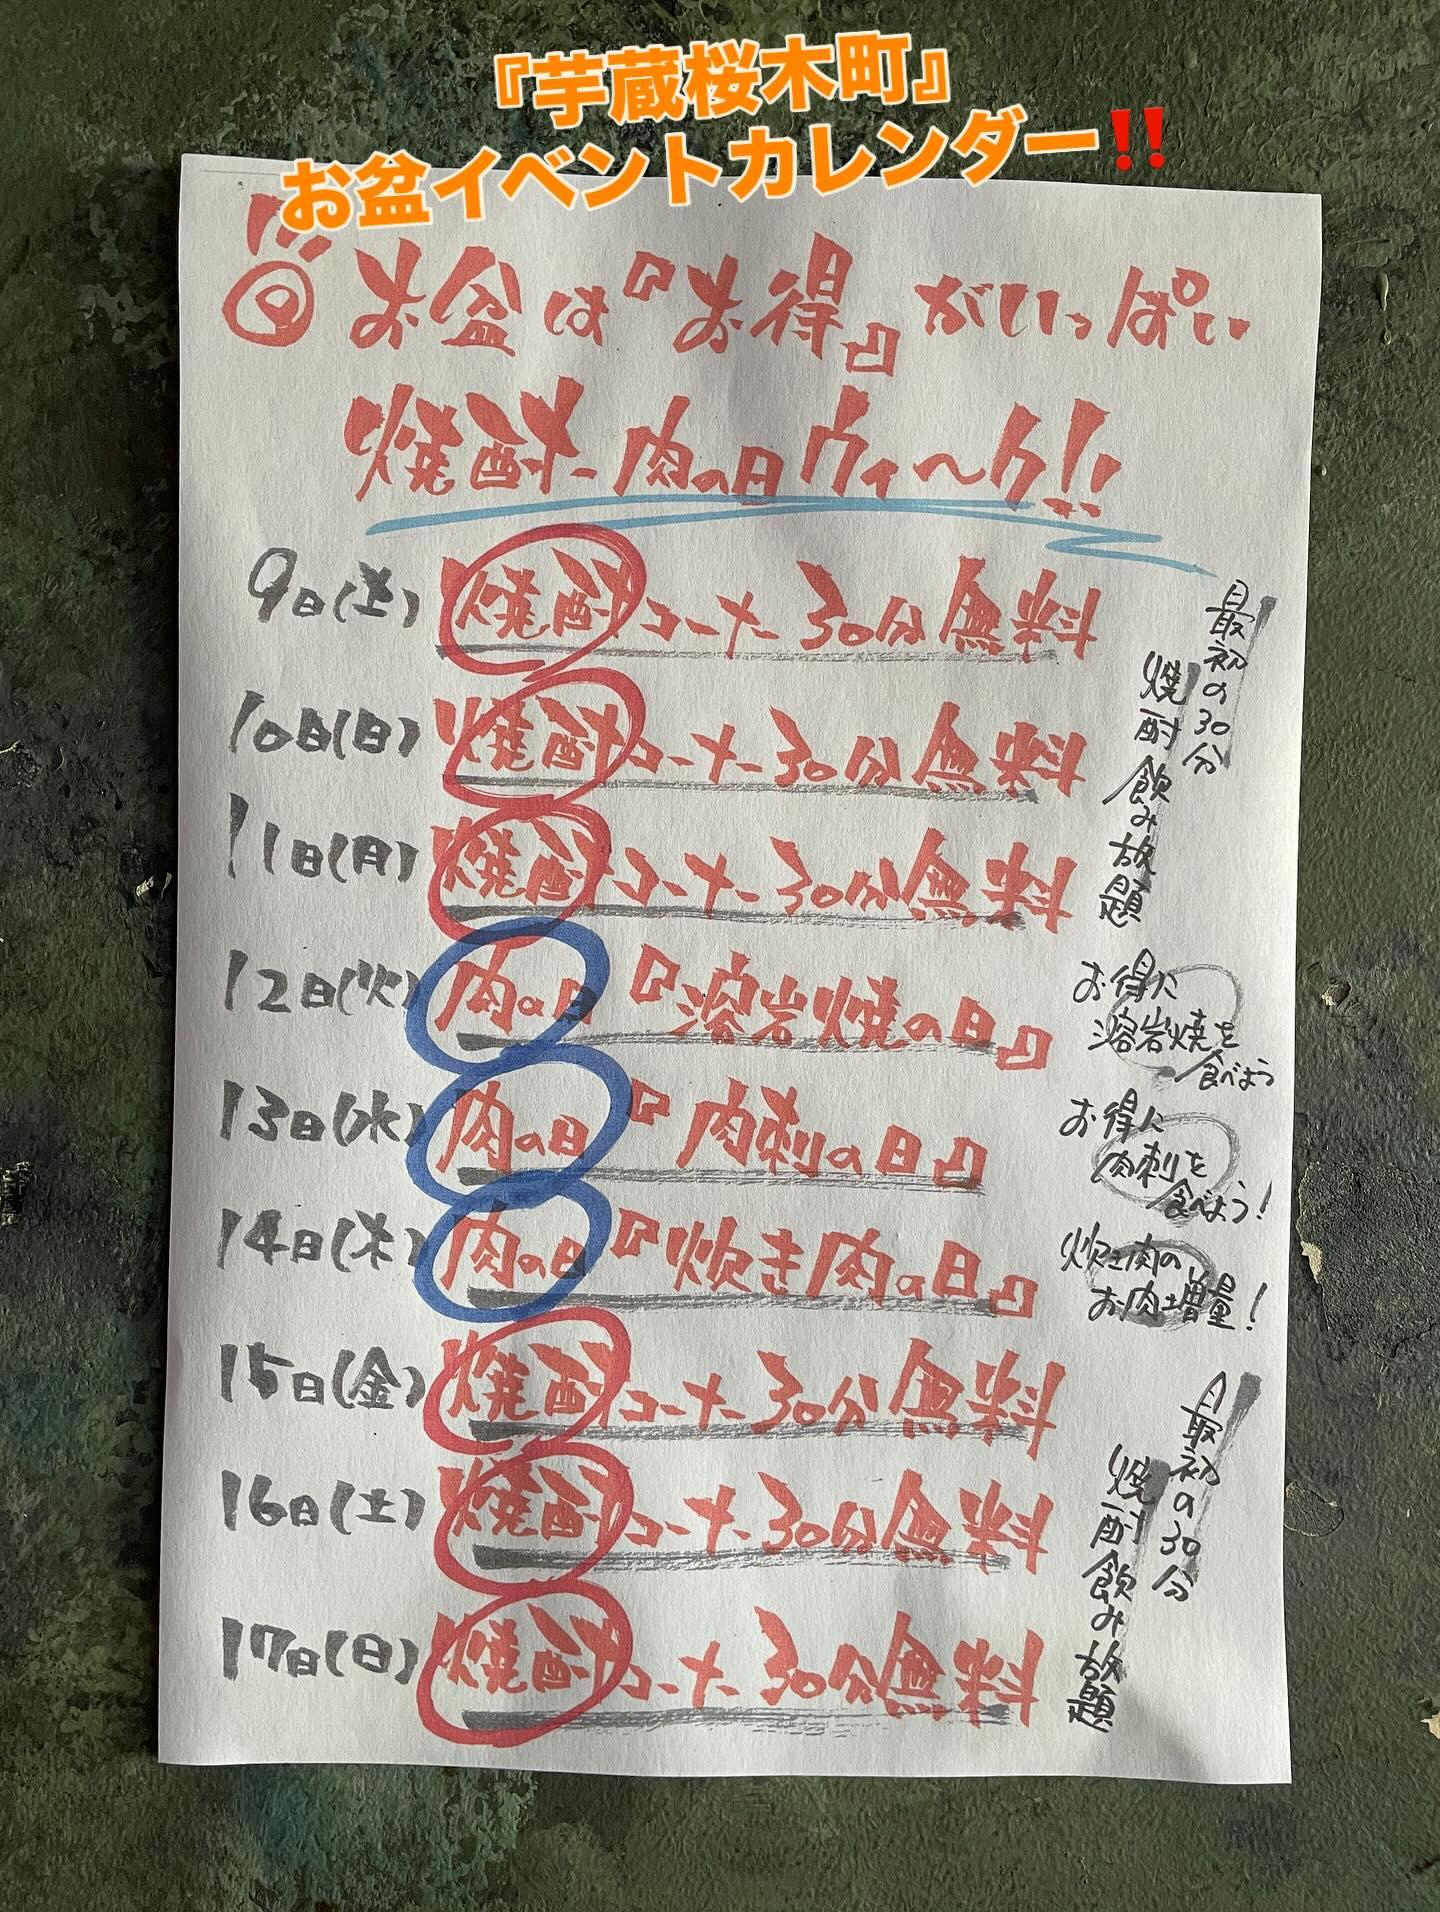 『芋蔵桜木町』
お盆イベントカレンダー‼️
お盆は『お得』がいっぱい
焼酎・肉の日ウィ〜ク!!
9日(土) 焼酎コーナー30分無料
10日(日) 焼酎コーナー30分無料
11日(月) 焼酎コーナー30分無料
最初の30分
焼酎飲み放題
12日(火) 肉の日 『溶岩焼の日』
お得に
溶岩焼を
食べよう
13日(水) 肉の日 『肉刺の日』
お得に
肉刺を
食べよう!
14日(木) 肉の日 『炊き肉の日』
炊き肉の
お肉増量!
15日(金) 焼酎コーナー30分無料
16日(土) 焼酎コーナー30分無料
17日(日) 焼酎コーナー30分無料
最初の30分
焼酎飲み放題